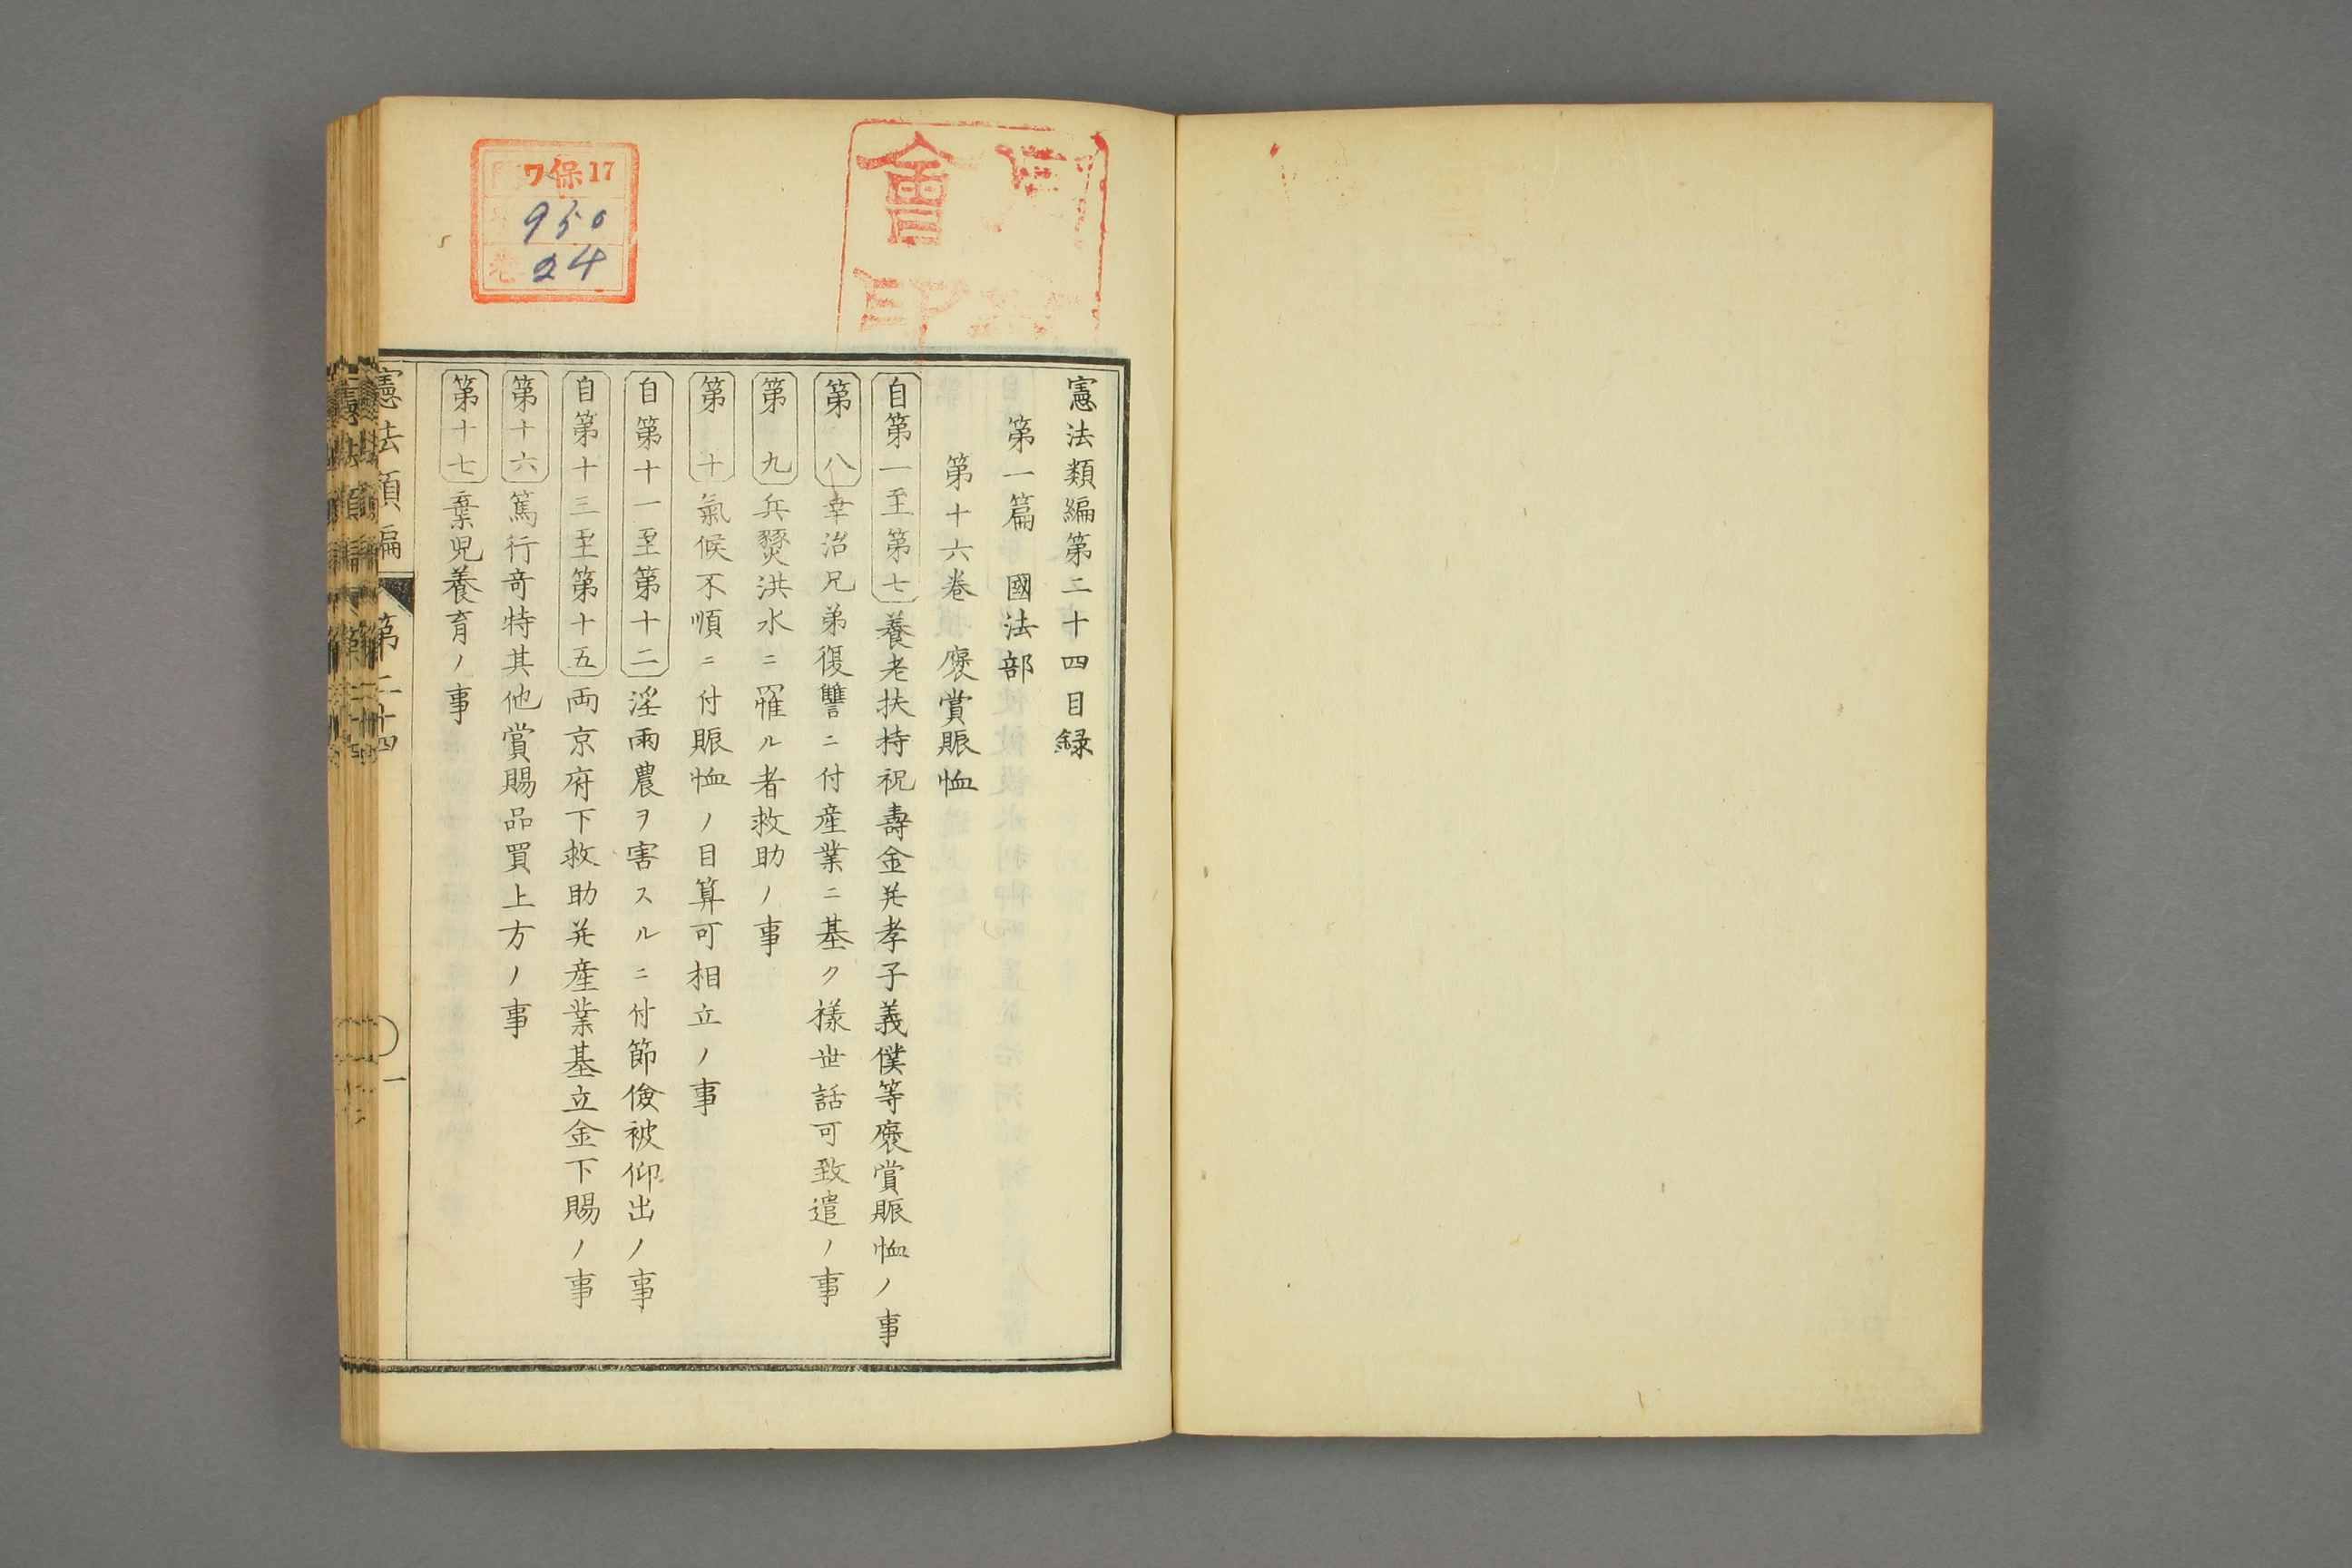 憲法類編第二十四目録
第一篇 國法部
第十六巻 褒賞賑恤
自第一至第七 養老扶持祝壽金并孝子義僕等褒賞賑恤ノ事
第八 幸治兄弟復讐ニ付産業ニ基ク樣世話可致遣ノ事
第九 兵燹洪水ニ罹ル者救助ノ事
第十 氣候不順ニ付賑恤ノ目算可相立ノ事
自第十一至第十二 淫雨農ヲ害スルニ付節儉被仰出ノ事
自第十三至第十五 両京府下救助并産業基立金下賜ノ事
第十六 篤行竒特其他賞賜品買上方ノ事
第十七 棄児養育ノ事
憲法類編 第二十四 一
會
印
ワ保17
950
巻 24